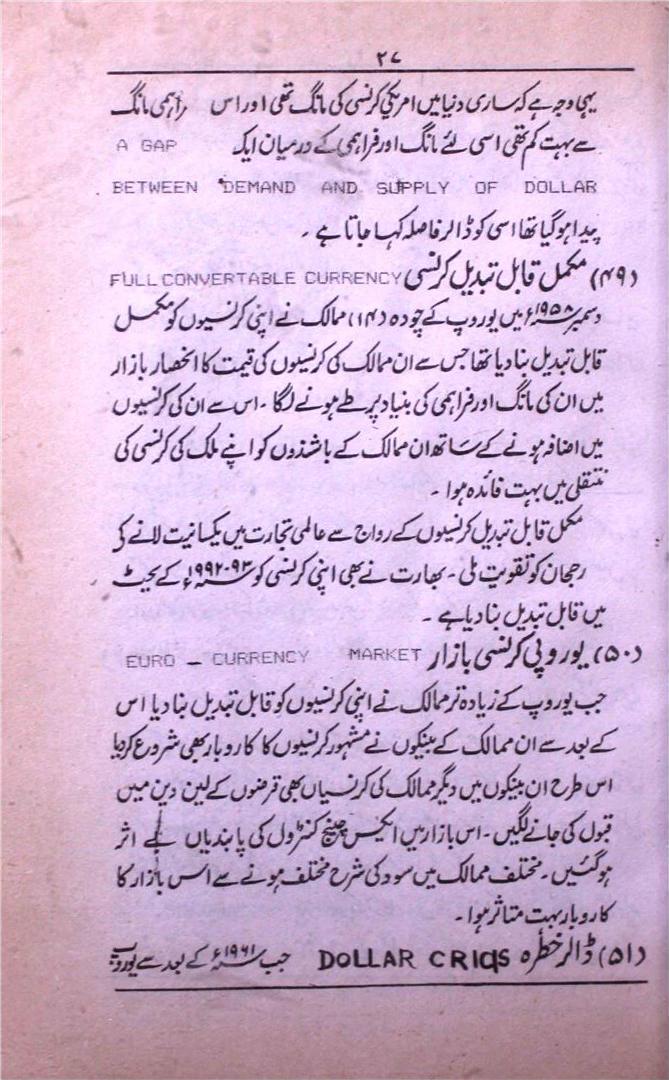 ۲۷
یہی وجہ ہے کہ ساری دنیا میں امریکی کرنسی کی مانگ تھی اور اس فراہمی مانگ
سے بہت کم تھی اسی لئے مانگ اور فراہمی کے درمیان ایک A GAP
BETWEEN DEMAND AND SUPPLY OF DOLLAR
پیدا ہوگیا تھا اسی کو ڈالر فاصلہ کہا جاتا ہے ۔
(۴۹) مکمل قابل تبدیل کرنسی FULL CONVERTABLE CURRENCY
دسمبر ۱۹۵۸ء میں یوروپ کے چودہ (۱۴) ممالک نے اپنی کرنسیوں کو مکمل
قابل تبدیل بنا دیا تھا جس سے ان ممالک کی کرنسیوں کی قیمت کا انحصار بازار
میں ان کی مانگ اور فراہمی کی بنیاد پر طے ہونے لگا ۔ اس سے ان کی کرنسیوں
میں اضافہ ہونے کے ساتھ ان ممالک کے باشندوں کو اپنے ملک کی کرنسی کی
منتقلی میں بہت فائدہ ہوا ۔
مکمل قابل تبدیل کرنسیوں کے رواج سے عالمی تجارت میں یکسانیت لانے کی
رجحان کو تقویت ملی ۔ بھارت نے بھی اپنی کرنسی کو ۹۳-۱۹۹۲ء کے بجٹ
میں قابل تبدیل بنا دیا ہے ۔
(۵۰) یوروپی کرنسی بازار EURO – CURRENCY MARKET
جب یوروپ کے زیادہ تر ممالک نے اپنی کرنسیوں کو قابل تبدیل بنا دیا اس
کے بعد سے ان ممالک کے بینکوں نے مشہور کرنسیوں کا کاروبار بھی شروع کر دیا
اس طرح ان بینکوں میں دیگر ممالک کی کرنسیاں بھی قرضوں کے لین دین میں
قبول کی جانے لگیں ۔ اس بازار میں ایکس چینج کنٹرول کی پابندیاں بے اثر
ہوگئیں ۔ مختلف ممالک میں سود کی شرح مختلف ہونے سے اس بازار کا
کاروبار بہت متاثر ہوا ۔
(۵۱) ڈالر خطرہ DOLLAR CRIqS جب ۱۹۶۱ء کے بعد سے یوروپ